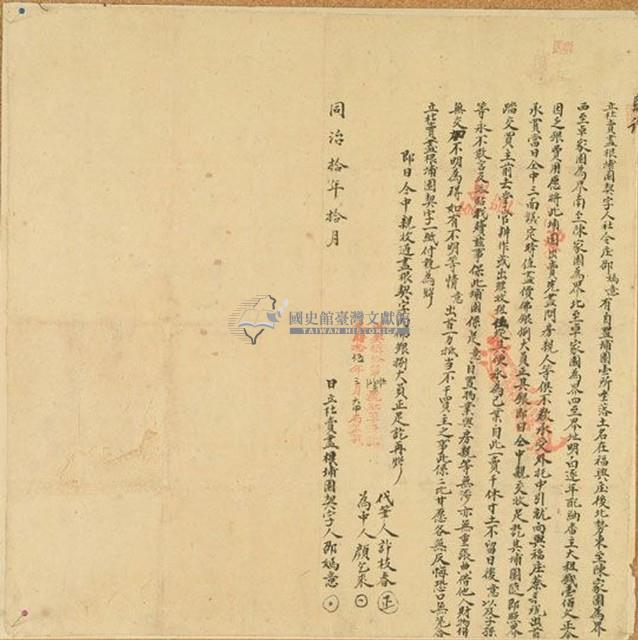 立杜賣盡根埔園契字人社仝庄邵媽意有自置埔園壹所坐落土名在福興庄後北勢東至陳家園為界
西至卓家園為界南至陳家園為界北至卓家園為界四至界址明白逐年配納番主大租錢壹佰文正今
因乏銀費用愿將此埔園出賣先盡問房親人等俱不欲承受外托中引就向與福庄蔡
承買當日仝中三面議定時值盡價佛銀捌大員正其銀即日仝中親交收足訖其埔園隨即照界
踏交買主前去掌管耕作或出贌收租任從其便永為己業自此一賣千休寸土不留日後意以及子孫
等永不敢言及添贖找續茲事保此埔園係是意自置物業與房親等無涉亦無重張典借他人財物情
無交加不明為碍如有不明等情意出首一力抵當不干買主之事此係二比甘愿各無反悔恐口無憑合
立杜賣盡根埔園契字一紙付執為炤
即日仝中親收過盡根契字 佛銀捌大員正足訖再炤
代筆人許枝春
為中人顏乞來
同治拾年拾月 日立杜賣盡根埔園契字人邵媽意
國史館臺灣文獻館
TAIWAN HISTORICA